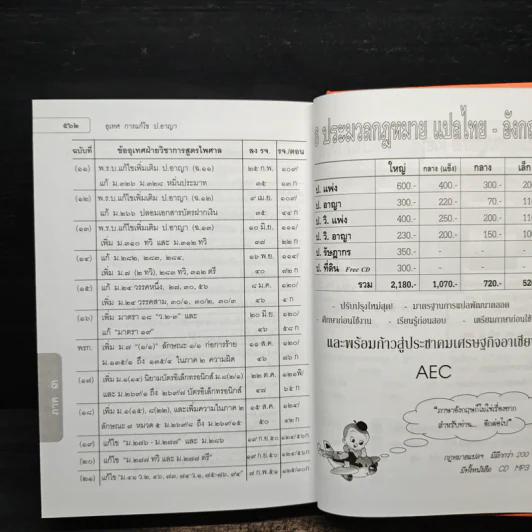 ๕๖๒ อุเทศ การแก้ไข ป.อาญา
ฉบับที่ ข้ออุเทศฝ่ายวิชาการสูตรไพศาล ลง รจ. รจ./ตอน
(๑๑) พ.ร.บ.แก้ไขเพิ่มเติม ป.อาญา (ฉ.๑๑) ๒๕ ก.พ. ๑๐๙/
แก้ ม.๓๒๖ ม.๓๒๘ หมิ่นประมาท ๓๕ ๑๓ ก
(๑๒) พ.ร.บ.แก้ไขเพิ่มเติม ป.อาญา (ฉ.๑๒) ๙ เม.ย. ๑๐๙/
แก้ ม.๒๖๖ ปลอมเอกสารบัตรฝากเงิน ๓๕ ๔๔ ก
(๑๓) พ.ร.บ.แก้ไขเพิ่มเติม ป.อาญา (ฉ.๑๓) ๑๐ มิ.ย. ๑๑๑/
เพิ่ม ม.๓๑๐ ทวิ และ ม.๓๑๒ ทวิ ๓๗ ๒๒ ก
(๑๔) แก้ ม.๒๘๒, ๒๘๓, ๒๘๔, ๑๖ พ.ย. ๑๑๔/
เพิ่ม ม.๗ (๒ ทวิ), ๒๘๓ ทวิ, ๓๑๒ ตรี ๔๐ ๗๒ ก
(๑๕) แก้ ม.๒๔ วรรคหนึ่ง, ๒๗, ๓๐, ๕๖ ๘ ม.ค. ๑๒๐/
เพิ่ม ม.๒๔ วรรคสาม, ๓๐/๑, ๓๐/๒, ๓๐/๓ ๔๖ ๑ ก
(๑๖) เพิ่ม มาตรา ๑๘ "ว.๒-๓" และ ๒๐ มิ.ย. ๑๒๐/
แก้ "มาตรา ๑๙" ๔๖ ๕๘ ก
พรก. เพิ่ม ม.๗ "(๑/๑)" ลักษณะ ๑/๑ ก่อการร้าย ๑๑ ส.ค. ๑๒๐/
ม.๑๓๕/๑ ถึง ๑๓๕/๔ ในภาค ๒ ความผิด ๔๖ ๗๖ ก
(๑๗) เพิ่ม ม.๑(๑๔) นิยามบัตรอิเล็กทรอนิกส์ ม.๘(๒/๑) ๒๒ ต.ค.
และ ม.๒๖๙/๑ ถึง ๒๖๙/๗ บัตรอิเล็กทรอนิกส์ ๔๗ ๖๕ ก
(๑๘) เพิ่ม ม.๑(๑๕), ๘(๒/๒), และเพิ่มความในภาค ๒ ๑๕ ส.ค. ๑๒๔/
ลักษณะ ๗ หมวด ๕ ม.๒๖๙/๘ ถึง ม.๒๖๙/๑๕ ๕๐ ๔๒ ก
(๑๙) แก้ไข "ม.๒๗๖ - ม.๒๗๗" และ ม.๒๘๖ ๑๙ ก.ย.๕๐ ๑๒๔/๕๖ก
(๒๐) แก้ไข "ม.๒๗๗ ทวิ และ ม.๒๗๗ ตรี" ๑๙ ก.ย.๕๐ ๑๒๔/๕๖ก
(๒๑) แก้ไข "ม.๔๑ ว.๒, ๔๖, ๗๓, ๗๔ ว.๑, ๗๕-๗๖, ๙๔" ๗ ก.พ.๕๑
ภาค ๓
ประมวลกฎหมาย แปลไทย - อังกฤษ
ใหญ่ กลาง (แข็ง) กลาง เล็ก
ป. แพ่ง 600.- 400.- 300.-
ป. อาญา 300.- 220.- 70.-
ป. วิ. แพ่ง 400.- 250.- 200.-
ป. วิ. อาญา 230.- 200.- 150.-
ป. รัษฎากร 350.- - - -
ป. ที่ดิน Free CD 300.- - - -
รวม 2,180.- 1,070.- 720.-
- ปรับปรุงใหม่สุด! - มาตรฐานการแปลพัฒนาตลอด
- ศึกษาก่อนใช้งาน - เรียนรู้ก่อนสอบ
และพร้อมก้าวสู่ประชาคมเศรษฐกิจอาเซียน
AEC
"ภาษาอังกฤษก็ไม่ใช่เรื่องยาก
สำหรับท่าน...
กฎหมายแปลฯ มีอีกกว่า 200
มีทั้งหนังสือ CD MP3